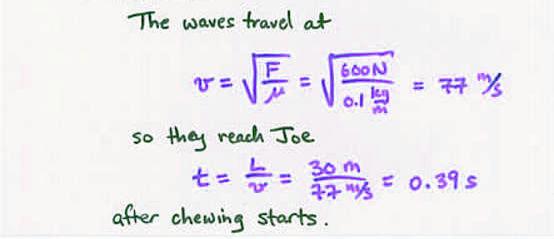 The waves travel at
v = √(F/μ) = √(600N/0.1 kg/m) = 77 m/s
so they reach Joe
t = L/v = 30 m/77 m/s = 0.39 s
after chewing starts.